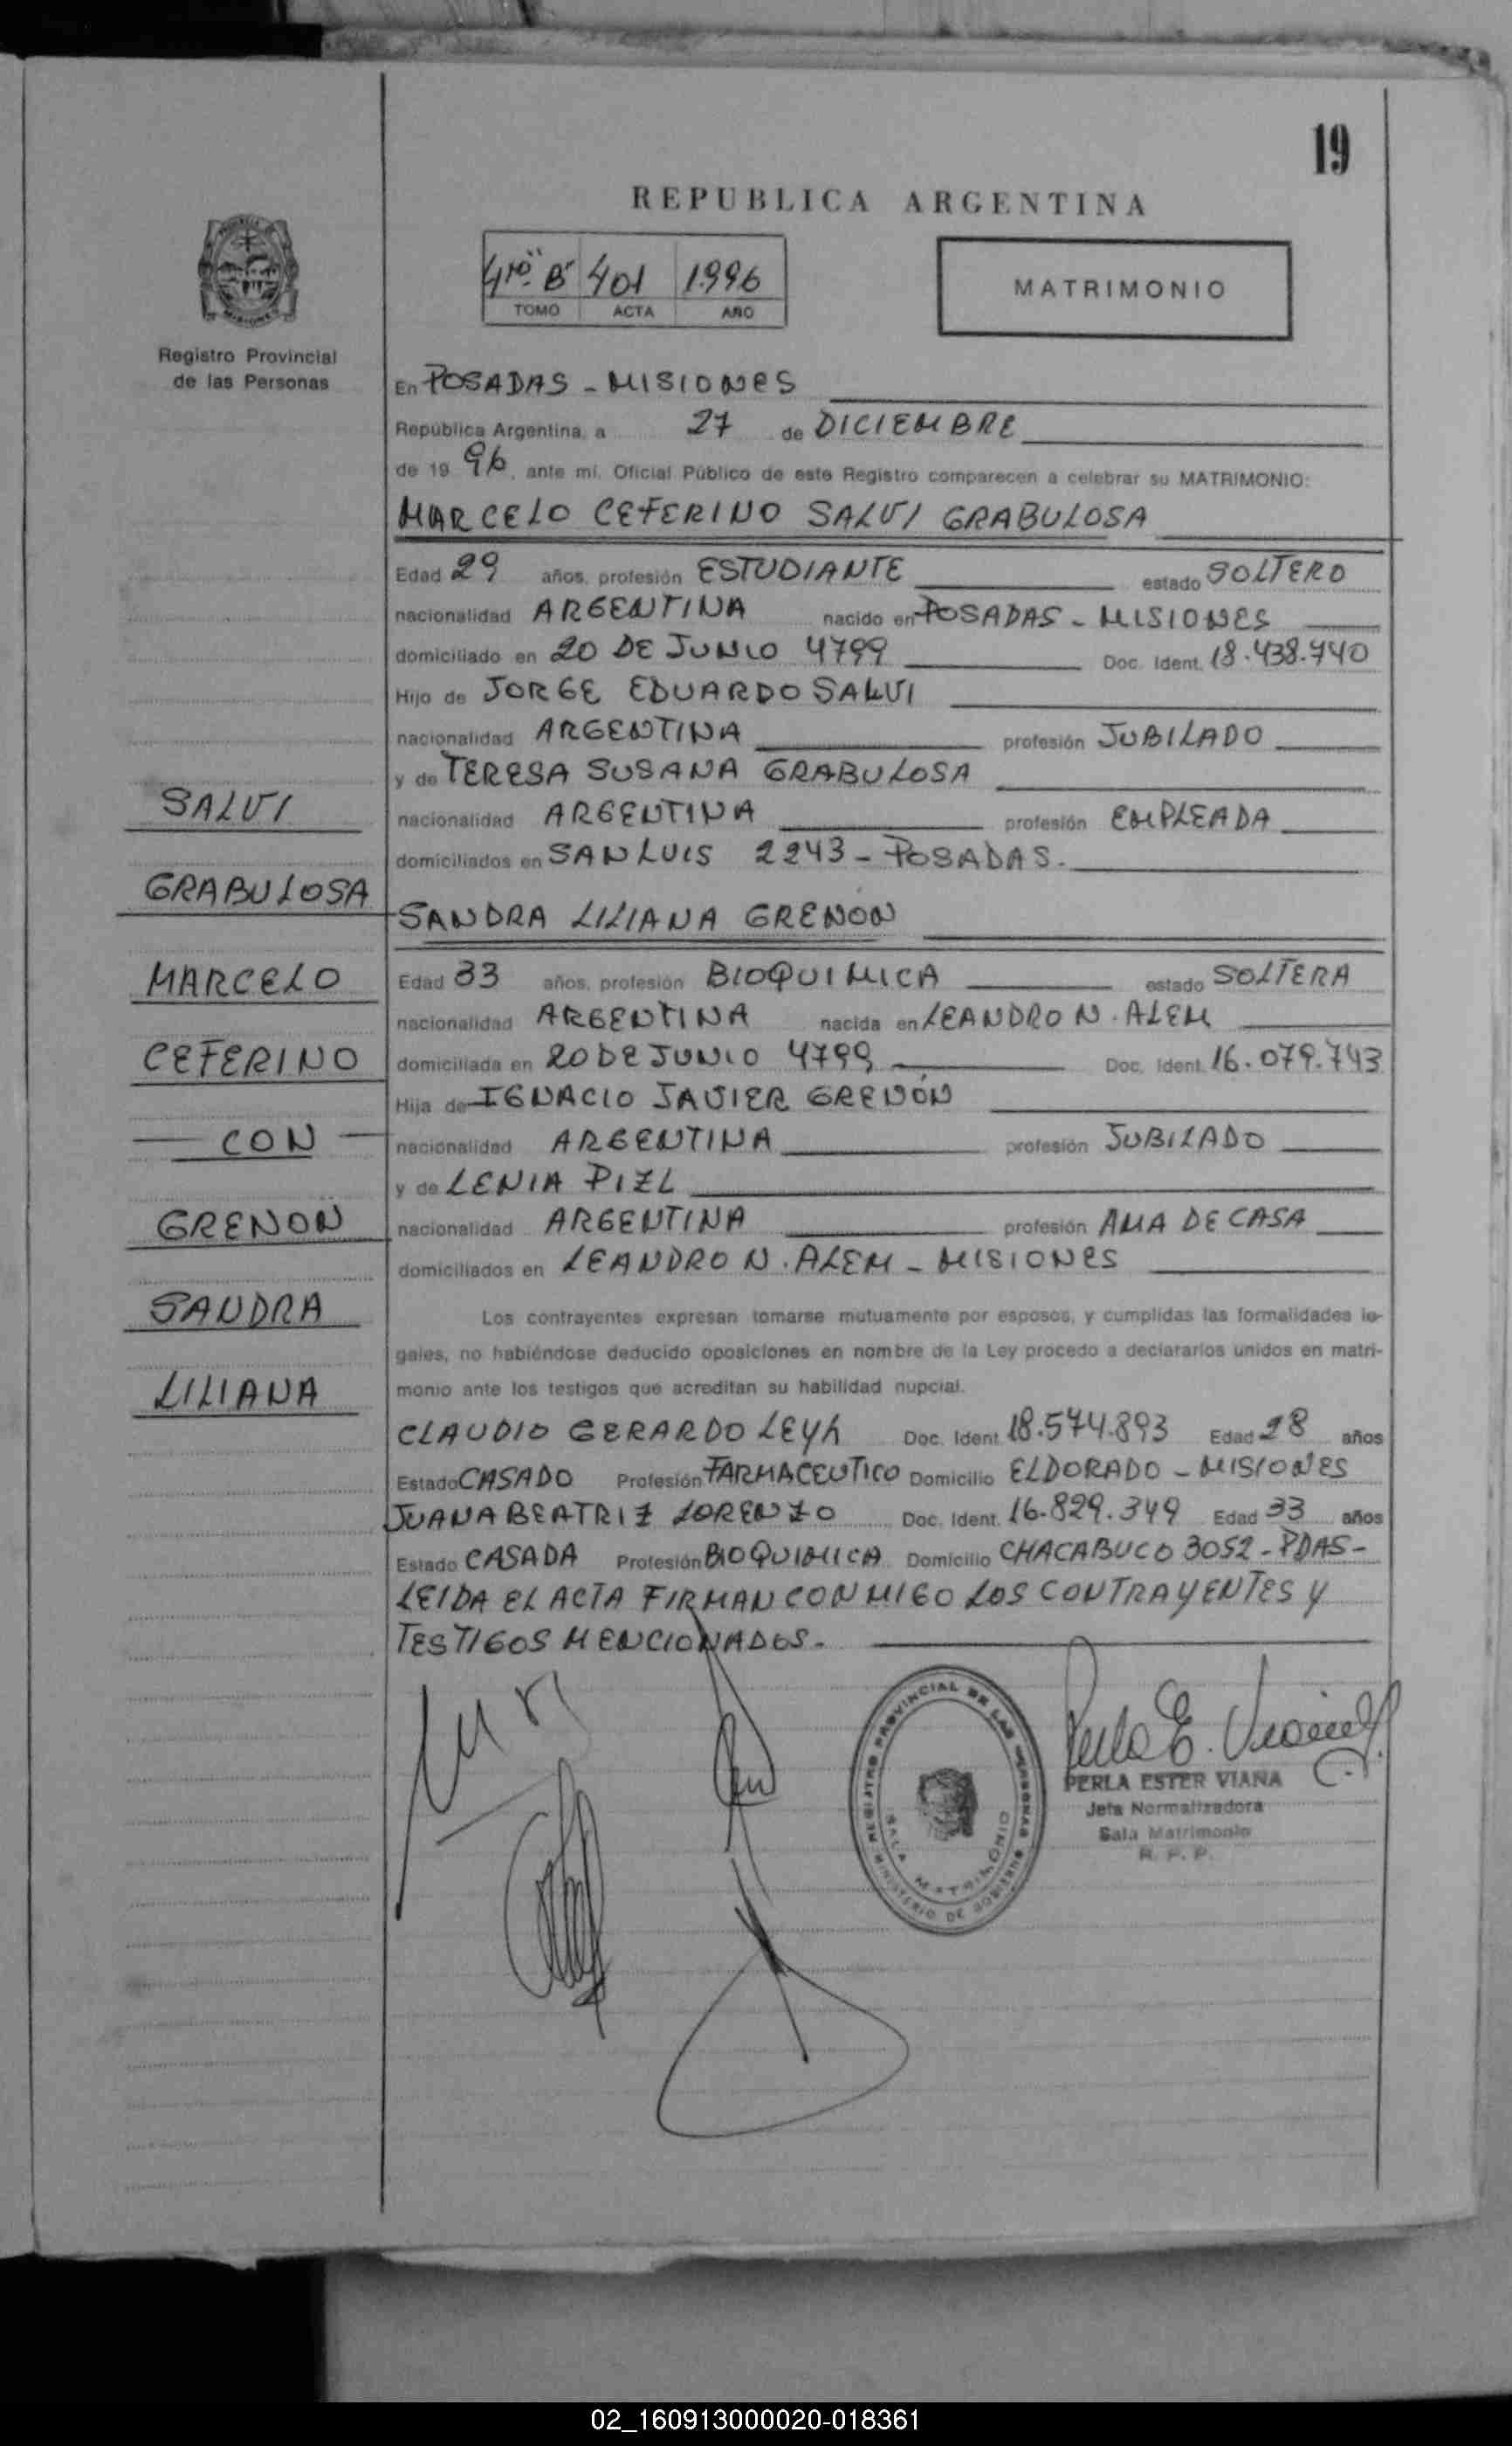 19
REPUBLICA ARGENTINA
4to "B" 401 1996
TOMO ACTA AÑO
MATRIMONIO
Registro Provincial
de las Personas
En POSADAS - MISIONES
República Argentina, a 27 de DICIEMBRE
de 19 96, ante mí, Oficial Público de este Registro comparecen a celebrar su MATRIMONIO:
MARCELO CEFERINO SALVI GRABULOSA
Edad 29 años, profesión ESTUDIANTE estado SOLTERO
nacionalidad ARGENTINA nacido en POSADAS - MISIONES
domiciliado en 20 DE JUNIO 4799 Doc. Ident. 18.438.740
Hijo de JORGE EDUARDO SALVI
nacionalidad ARGENTINA profesión JUBILADO
y de TERESA SUSANA GRABULOSA
nacionalidad ARGENTINA profesión EMPLEADA
domiciliados en SAN LUIS 2243 - POSADAS.
SANDRA LILIANA GRENON
Edad 33 años, profesión BIOQUIMICA estado SOLTERA
nacionalidad ARGENTINA nacida en LEANDRO N. ALEM
domiciliada en 20 DE JUNIO 4799 Doc. Ident. 16.079.743
Hija de IGNACIO JAVIER GRENÓN
nacionalidad ARGENTINA profesión JUBILADO
y de LENIA PIZL
nacionalidad ARGENTINA profesión AMA DE CASA
domiciliados en LEANDRO N. ALEM - MISIONES
Los contrayentes expresan tomarse mutuamente por esposos, y cumplidas las formalidades le-
gales, no habiéndose deducido oposiciones en nombre de la Ley procedo a declararlos unidos en matri-
monio ante los testigos que acreditan su habilidad nupcial.
CLAUDIO GERARDO LEYH Doc. Ident. 18.574.893 Edad 28 años
Estado CASADO Profesión FARMACEUTICO Domicilio ELDORADO - MISIONES
JUANA BEATRIZ LORENZO Doc. Ident. 16.829.349 Edad 33 años
Estado CASADA Profesión BIOQUIMICA Domicilio CHACABUCO 3052 - PDAS -
LEIDA EL ACTA FIRMAN CONMIGO LOS CONTRAYENTES Y
TESTIGOS MENCIONADOS.
SALVI
GRABULOSA
MARCELO
CEFERINO
CON
GRENON
SANDRA
LILIANA
REGISTRO PROVINCIAL DE LAS PERSONAS
SALA MATRIMONIO
MINISTERIO DE GOBIERNO
PERLA ESTER VIANA
Jefa Normalizadora
Sala Matrimonio
R. P. P.
02_160913000020-018361